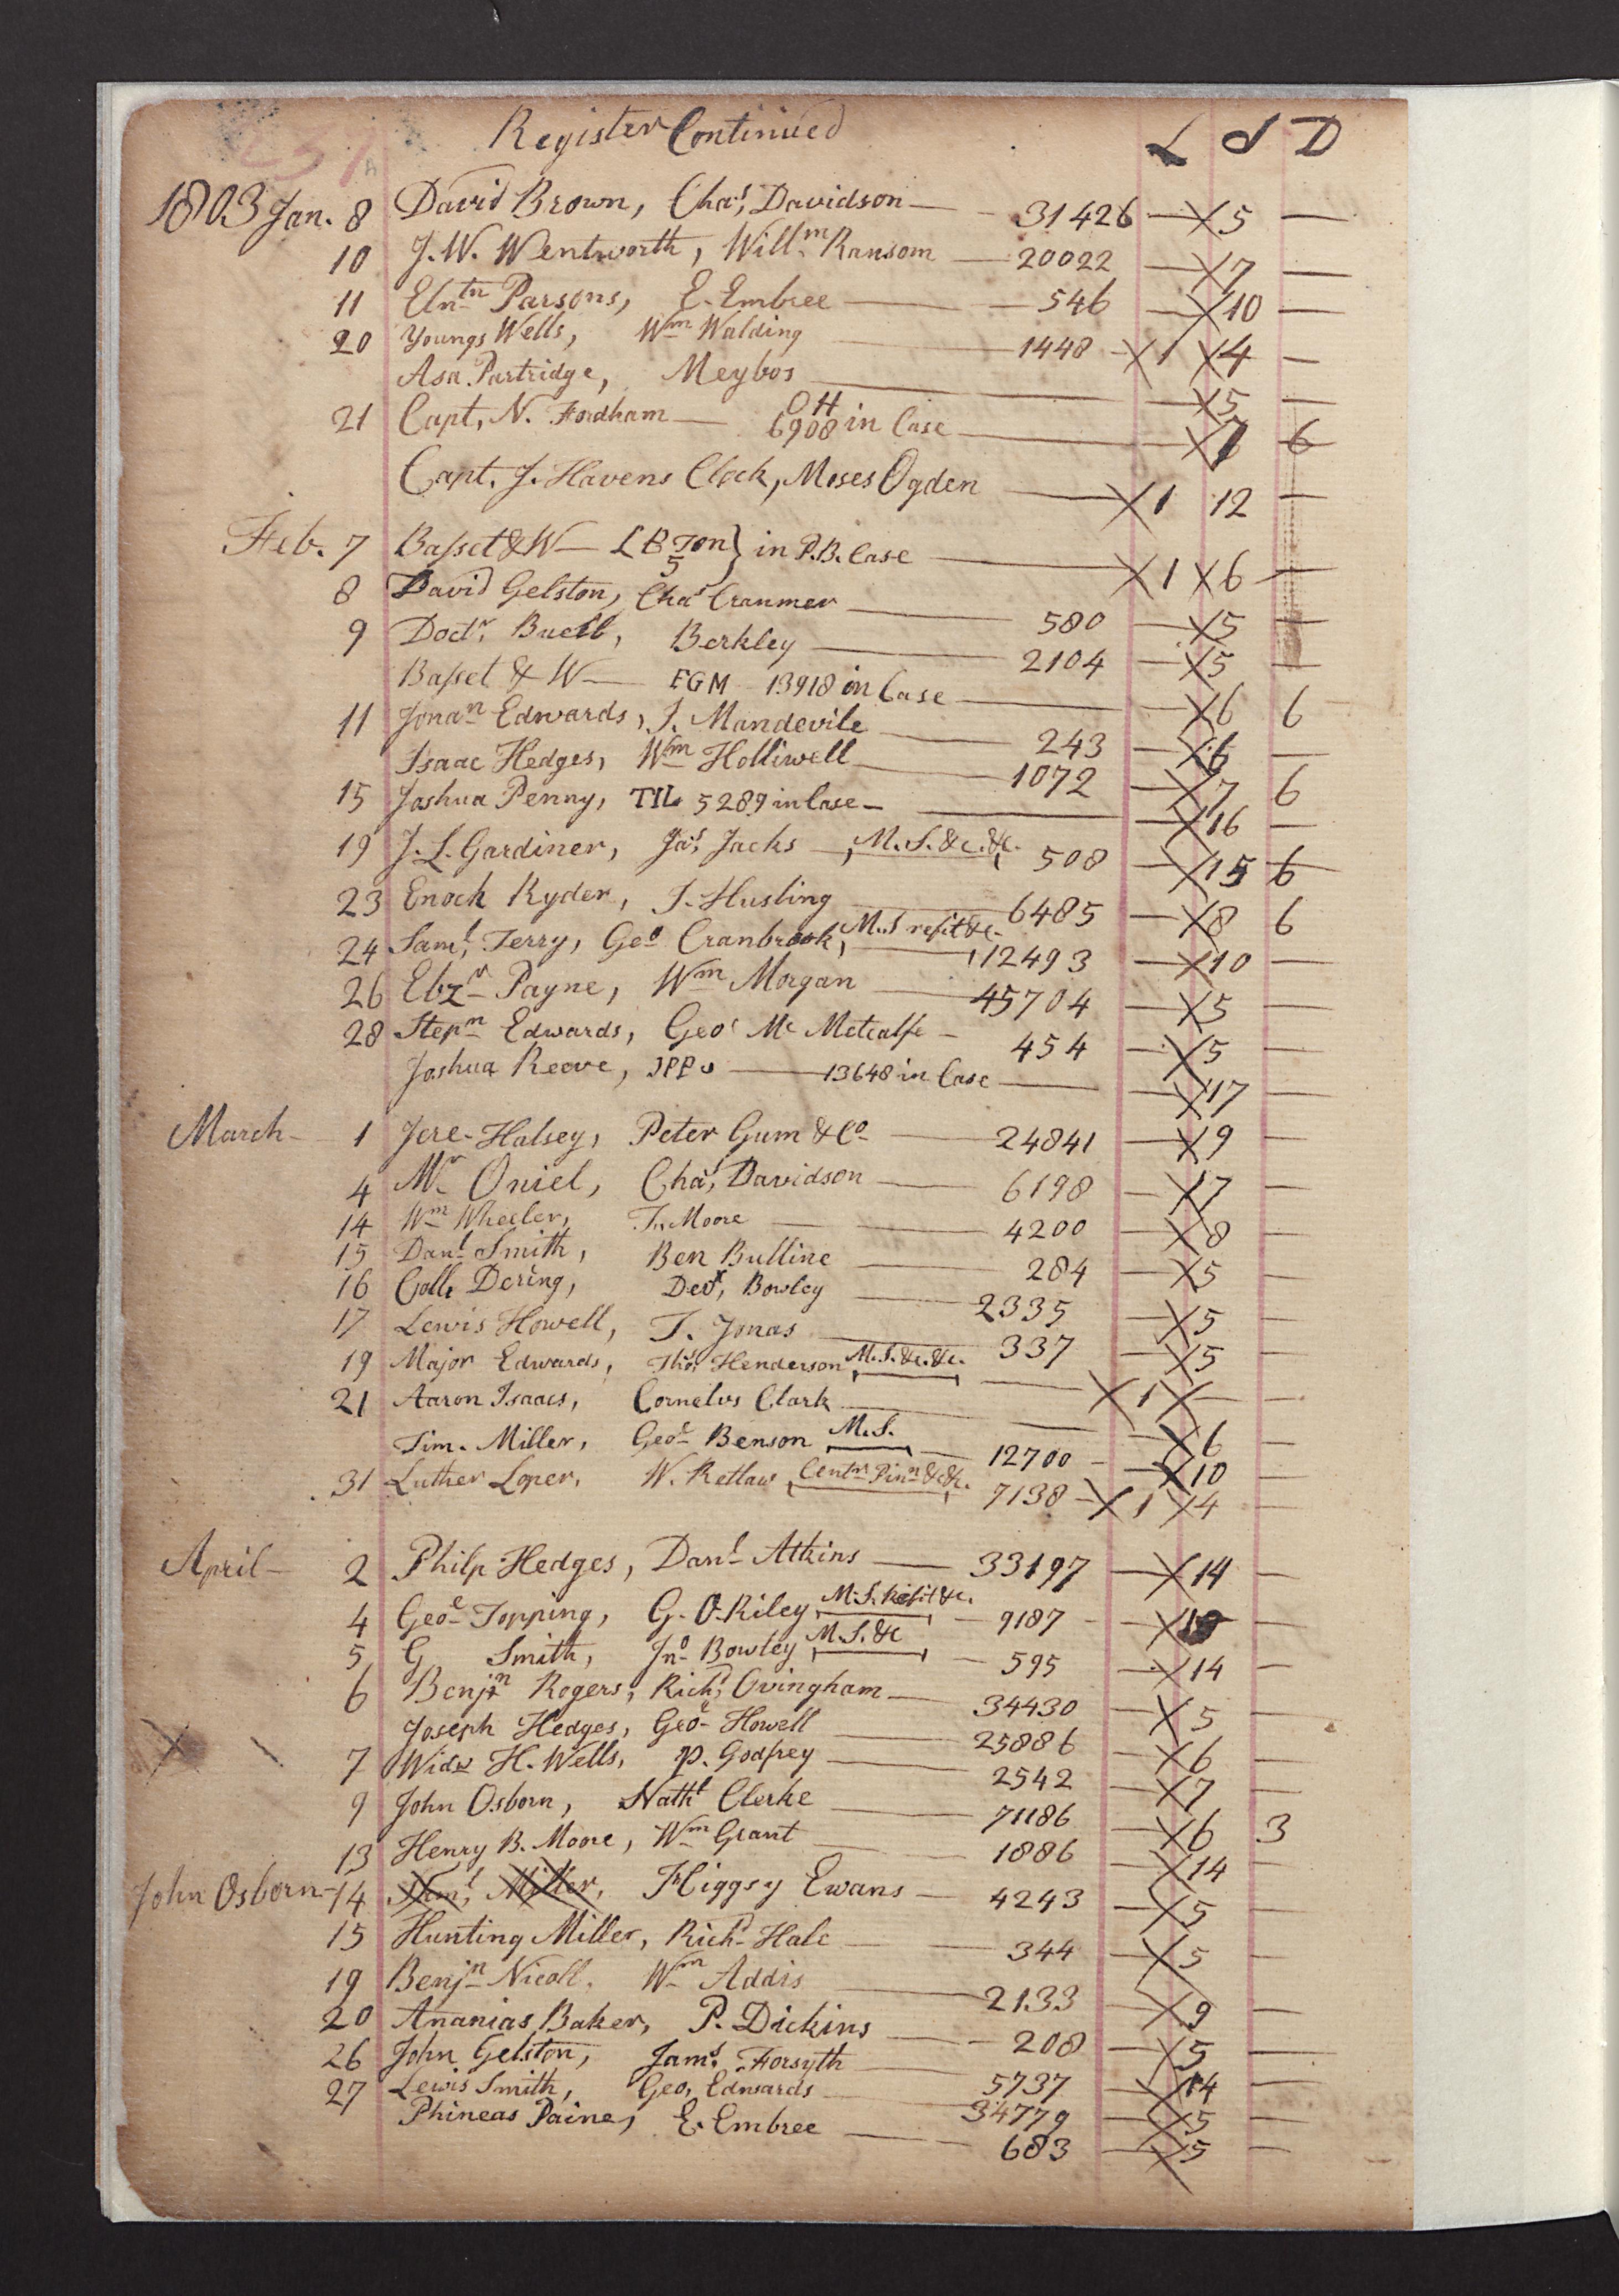 Register Continued L S D
1803 Jan. 8 David Brown, Chas, Davidson — 31426 — X 5 —
10 J. W. Wentworth, Willm Ransom — 20022 — X 7 —
11 Elntn Parsons, E. Embree — 546 — X 10 —
20 Youngs Wells, Wm Walding — 1448 — X 1 X 4 —
Asa Partridge, Meybos — X 5 —
21 Capt, N. Fordham — OH 6908 in Case — X 7 6
Capt. J. Havens Clock, Moses Ogden — X 1 12 —
Feb. 7 Basset & W — in P.B. Case — X 1 X 6 —
8 David Gelston, Chas Cranmer — 580 — X 5 —
9 Doctr, Buell, Berkley — 2104 — X 5 —
Basset & W — EGM 13918 in Case — X 6 6
11 Jonan Edwards, J. Mandevile — 243 — X 6 —
Isaac Hedges, Wm Holliwell — 1072 — X 7 6
15 Joshua Penny, TIL 5289 in Case — X 16 —
19 J. L. Gardiner, Jas, Jacks — M.S. &c. &c. 508 — X 15 6
23 Enoch Ryder, J. Husling — 6485 — X 8 6
24 Saml, Terry, Geo Cranbrook, M.S refit &c. 12493 — X 10 —
26 Ebzr Payne, Wm Morgan — 45704 — X 5 —
28 Stepn Edwards, Geo Mc Metcalfe — 454 — X 5 —
Joshua Reeve, — 13648 in Case — X 17 —
March — 1 Jere. Halsey, Peter Gum & Co — 24841 — X 9 —
4 Mr Oniel, Chas, Davidson — 6198 — X 17 —
14 Wm Wheeler, T. Moore — 4200 — X 8 —
15 Danl Smith, Ben Bulline — 284 — X 5 —
16 Coll. Dering, Bowley — 2335 — X 5 —
17 Lewis Howell, T. Jonas — 337 — X 5 —
19 Major Edwards, Thos, Henderson M.S. &c. &c. — X 1 X —
21 Aaron Isaacs, Cornelus Clark — X 6 —
Tim. Miller, Geoe Benson M.S. — 12700 — X 10 —
31 Luther Loper, W. Retlaw Centr Pinn &c &c. 7138 — X 1 X 4 —
April — 2 Philip Hedges, Danl Atkins — 33197 — X 14 —
4 Geoe Topping, G. O. Riley M.S. Refit &c. — 9187 — X
5 G Smith, Jno Bowley M.S. &c — 595 — X 14 —
6 Benjn Rogers, Richd, Ovingham — 34430 — X 5 —
Joseph Hedges, Geoe Howell — 25886 — X 6 —
7 Widw H. Wells, P. Godfrey — 2542 — X 7 —
9 John Osborn, Nathl Clerke — 71186 — X 6 3
13 Henry B. Moore, Wm Grant — 1886 — X 14 —
John Osborn — 14 Saml Miller, Higgsy Ewans — 4243 — X 5 —
15 Hunting Miller, Richd Hale — 344 — X 5 —
19 Benjn Nicoll, Wm Addis — 2133 — X 9 —
20 Ananias Baker, P. Dickins — 208 — X 5 —
26 John Gelston, Jams, Forsyth — 5737 — X 14 —
27 Lewis Smith, Geo, Edwards — 34779 — X 5 —
Phineas Paine, E. Embree — 683 — X 5 —